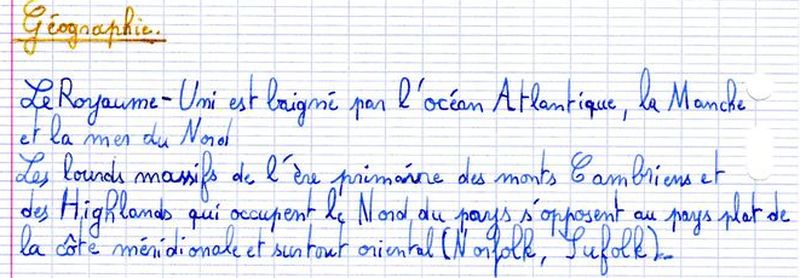 Géographie.
Le Royaume-Uni est baigné par l'océan Atlantique, la Manche
et la mer du Nord
Les lourds massifs de l'ère primaire des monts Cambriens et
des Highlands qui occupent le Nord du pays s'opposent au pays plat de
la côte méridionale et surtout oriental (Norfolk, Sufolk).